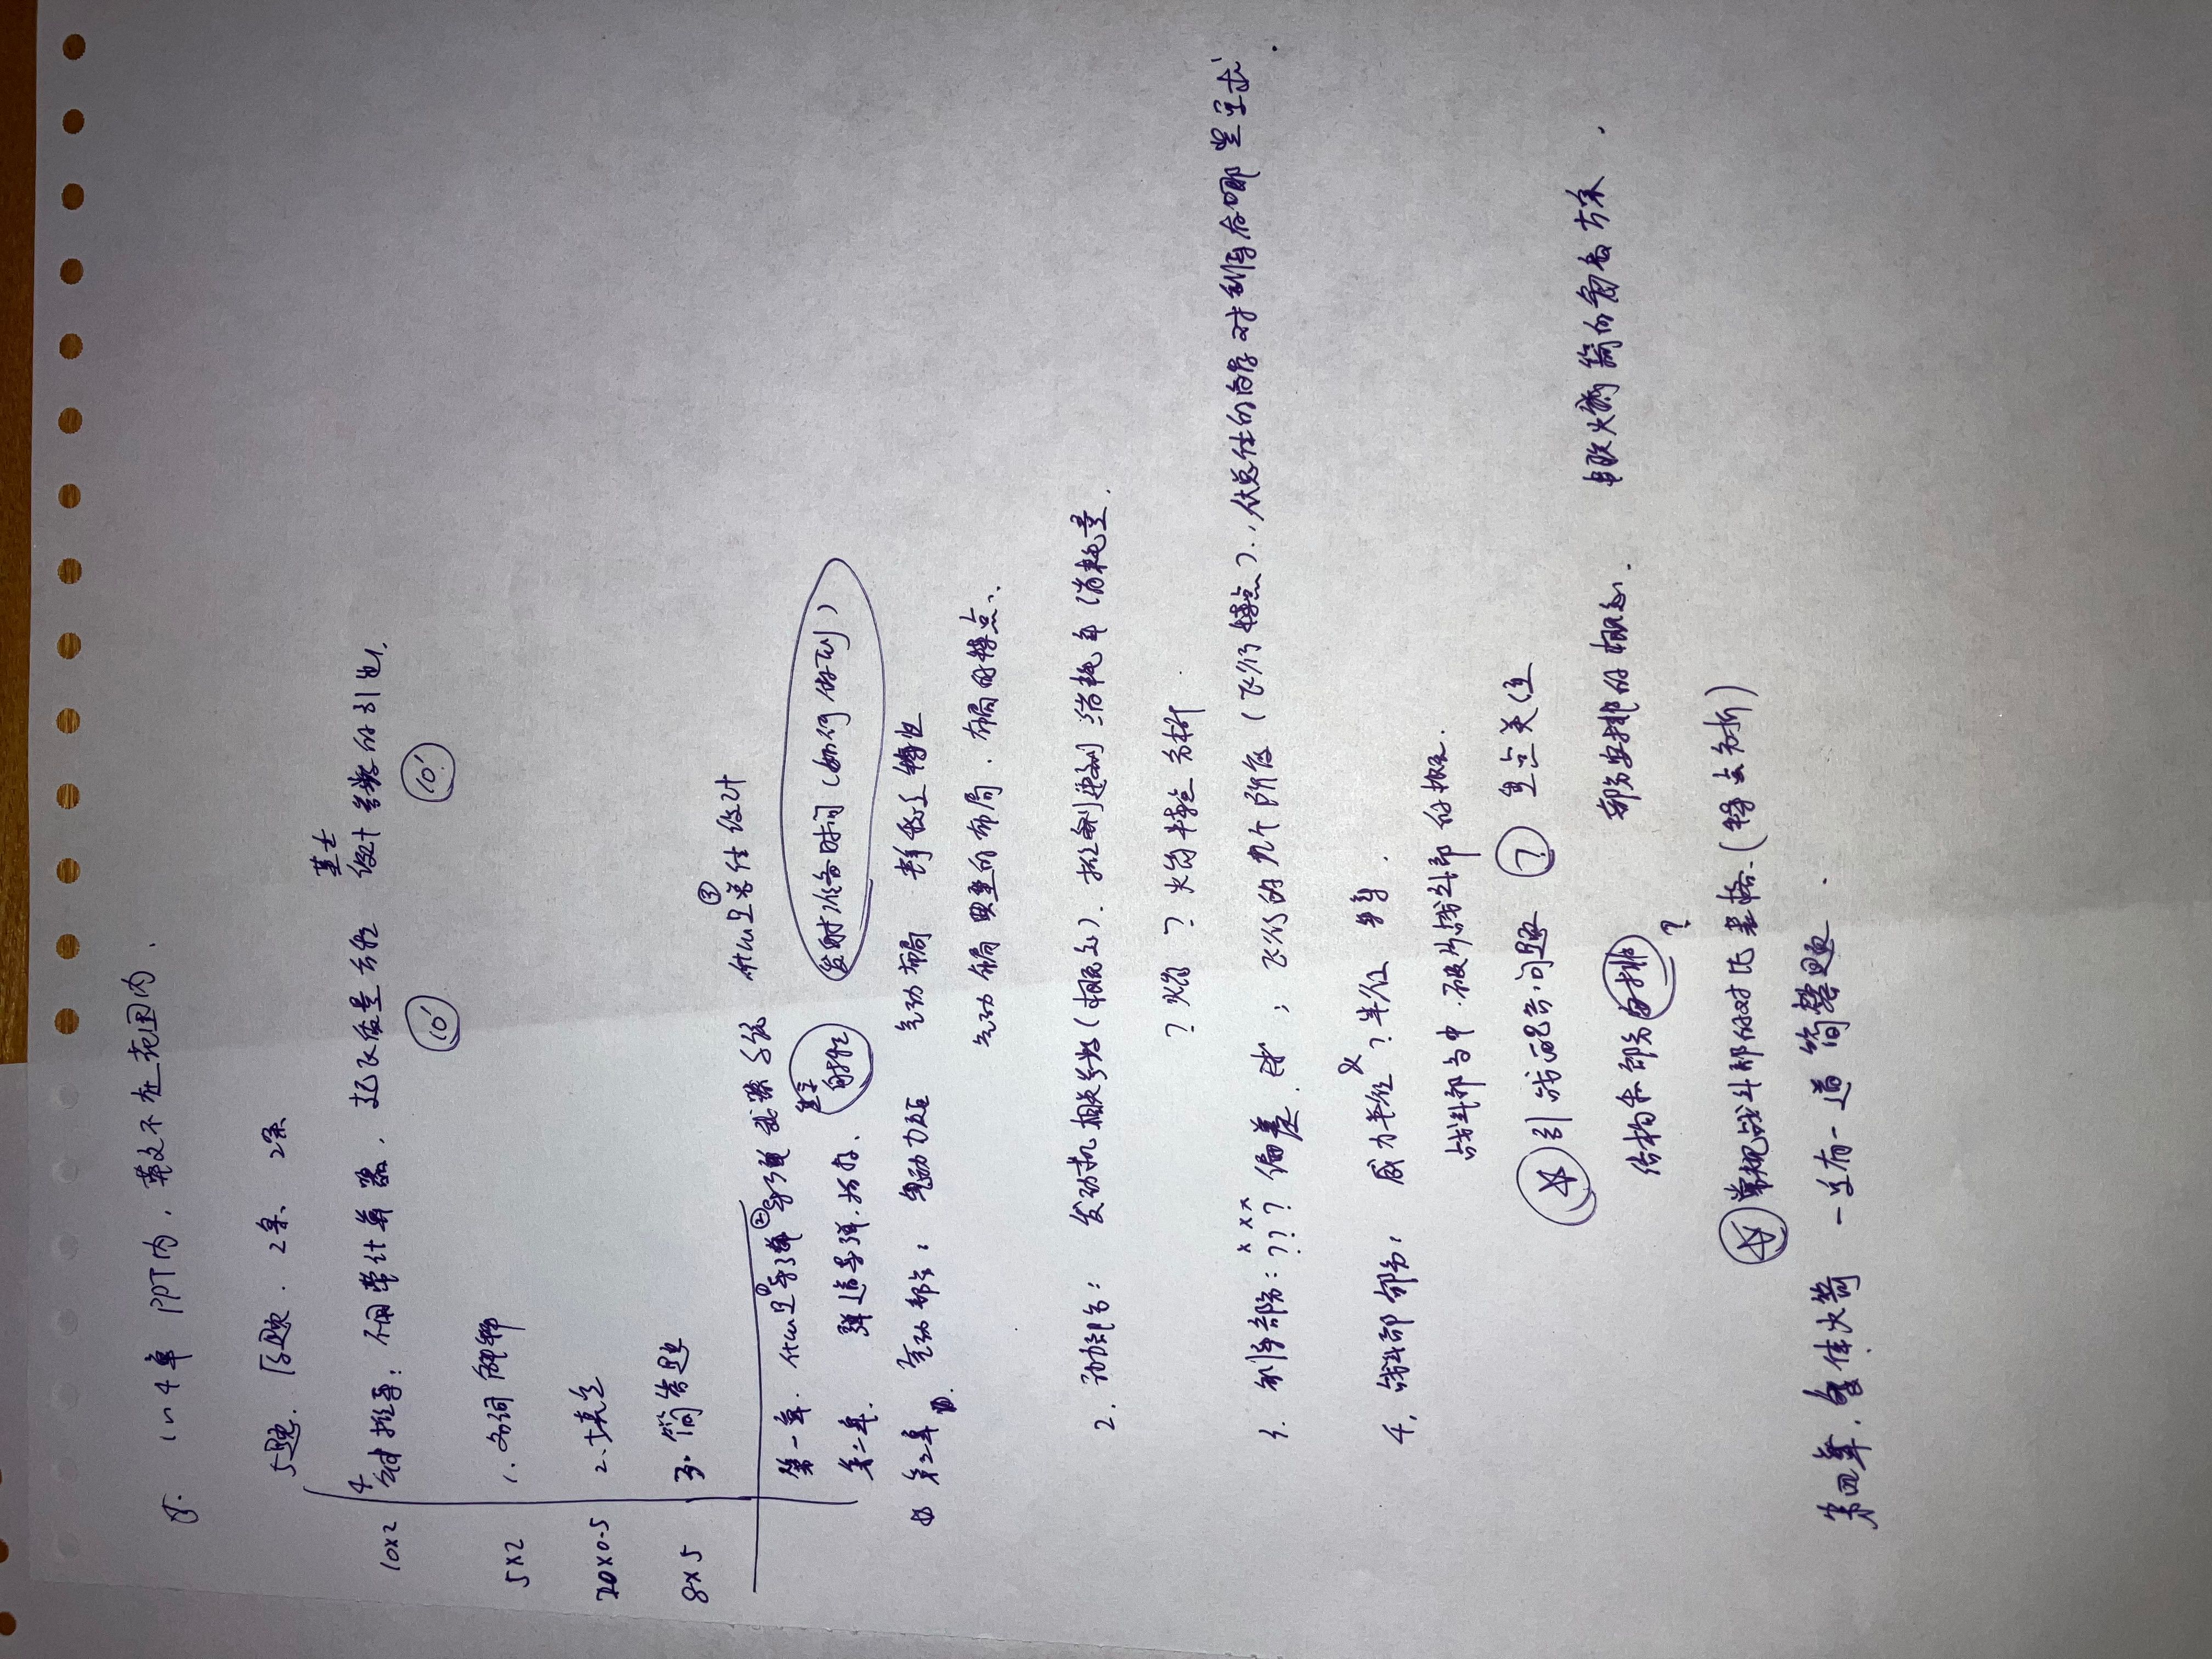 1~4章 PPT内，英文不在范围内．
5题． 后题． 2条、 2条
基本
10×2 4 推导：不用带计算器，起飞质量方程 设计参数的引出．
10′ 10′
5×2 1. 名词解释
20×0.5 2. 填空
8×5 3. 简答题
③
第一章． 什么是①导弹 ②导弹武器系统 什么是总体设计
第二章． 弹道导弹． 射程 发射准备时间（如何做到）
第三章 气动部分： 气动布局 静稳定特性
气动布局 典型的布局．布局的特点、
2. 动力部分： 发动机相关参数（概念）． 消耗率 消耗量．
？火箭 ？ 火箭特点分析
3. 制导部分： ××× ？？？偏差 ； 飞行的几个阶段（飞行特点）．，从总体的角度对制导有哪些要求
4. 战斗部部分： 威力半径 & ？半径
战斗部当中．破片战斗部的概念．
☆ 引战配合问题 ？ 重点关注
结构和部分安排 ？ 部分安排的概念、
☆ 常规战斗部的对比表格．（特点分析）
第四章． 火箭 一定有一道简答题．